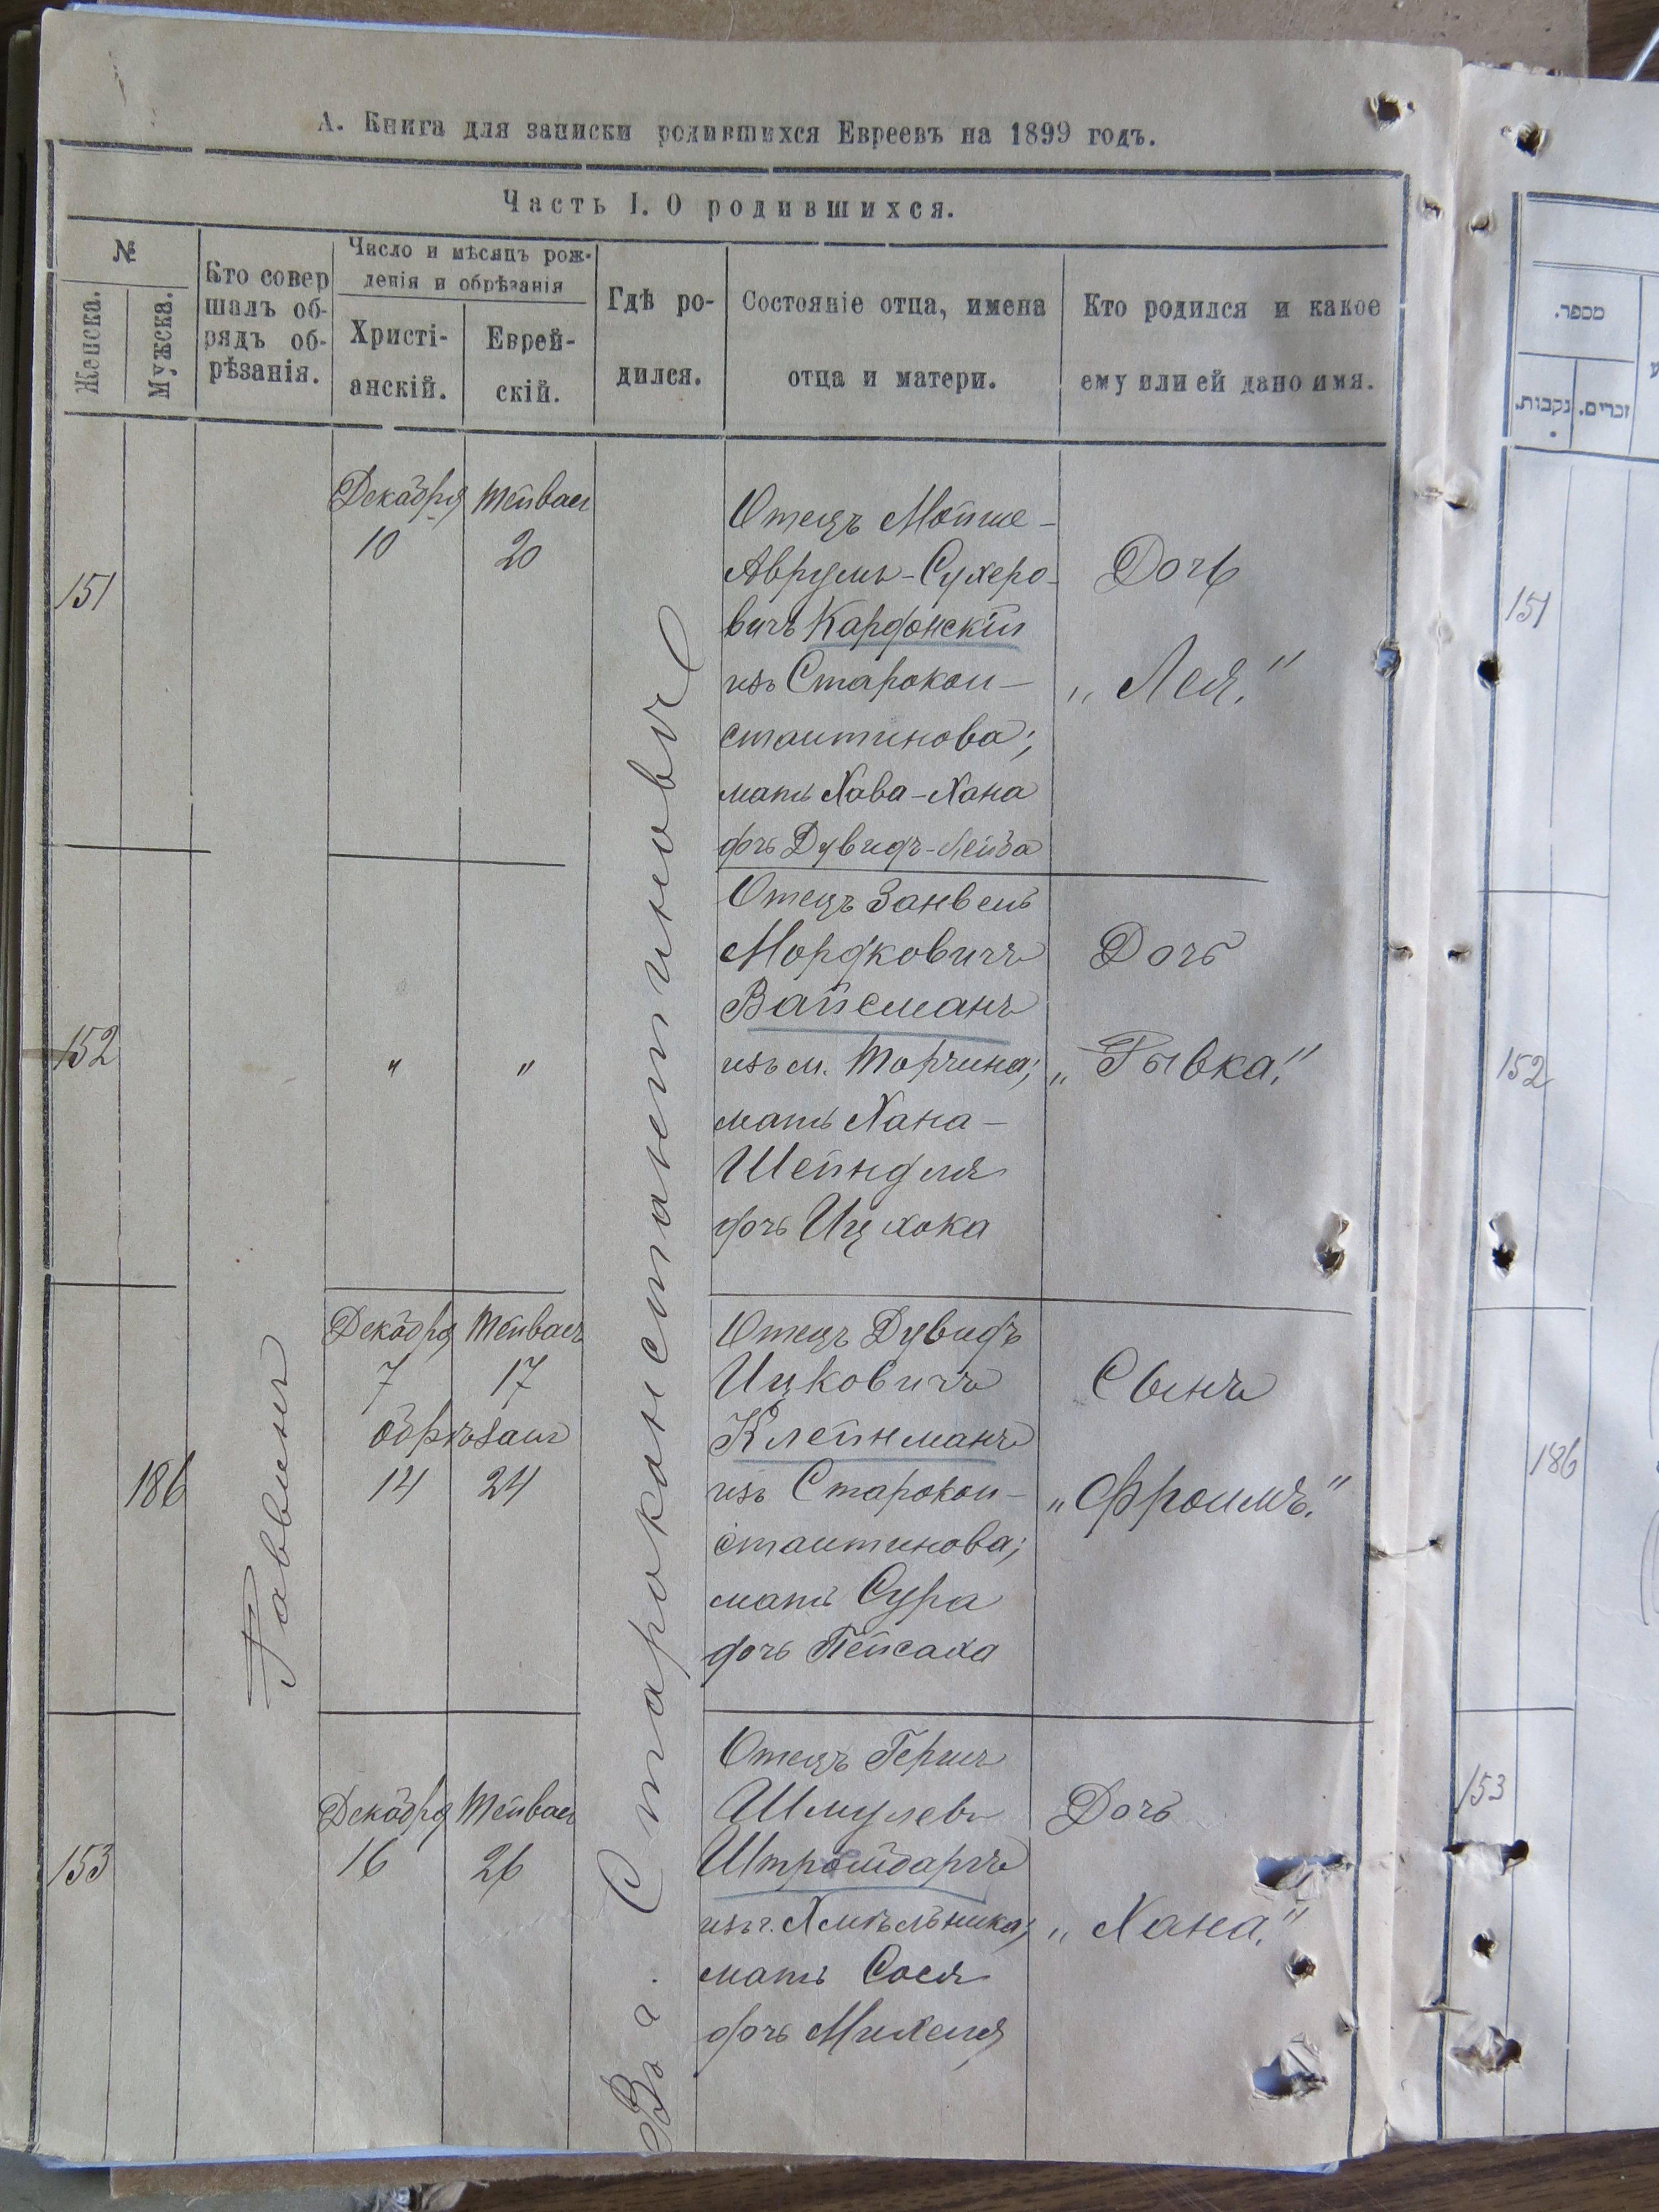 А. Книга для записки родившихся Евреевъ на 1899 годъ.
Часть I. О родившихся.
№
Женска.
Мужска.
Кто совер
шалъ об-
рядъ об-
рѣзанія.
Число и мѣсяцъ рож-
денія и обрѣзанія
Христі-
анскій.
Еврей-
скій.
Гдѣ ро-
дился.
Состояніе отца, имена
отца и матери.
Кто родился и какое
ему или ей дано имя.
151
Декабря Тейвасъ
10 20
Отецъ Мойше-
Аврумъ-Сухеро-
вичъ Кардонскій
изъ Старокон-
стантинова;
мать Хава-Хана
дочь Дувидъ-Лейба
Дочь
„Лея."
152
" "
Отецъ Занвель
Мордковичъ
Вайсманъ
изъ м. Торчина;
мать Хана-
Шейндля
дочь Ицхока
Дочь
„Рывка."
186
Раввинъ
Декабря Тейвасъ
7 17
обрѣзанъ
14 24
Отецъ Дувидъ
Ицковичъ
Клейнманъ
изъ Старокон-
стантинова;
мать Сура
дочь Пейсаха
Сынъ
„Фроимъ."
153
Декабря Тейвасъ
16 26
Въ г. Старокансстантиновѣ
Отецъ Гершъ
Шмулевъ
Штройбархъ
изъ г. Хмѣльника;
мать Сося
дочь Михеля
Дочь
„Хана."
מספר.
נקבות.
זכרים.
151
152
186
153